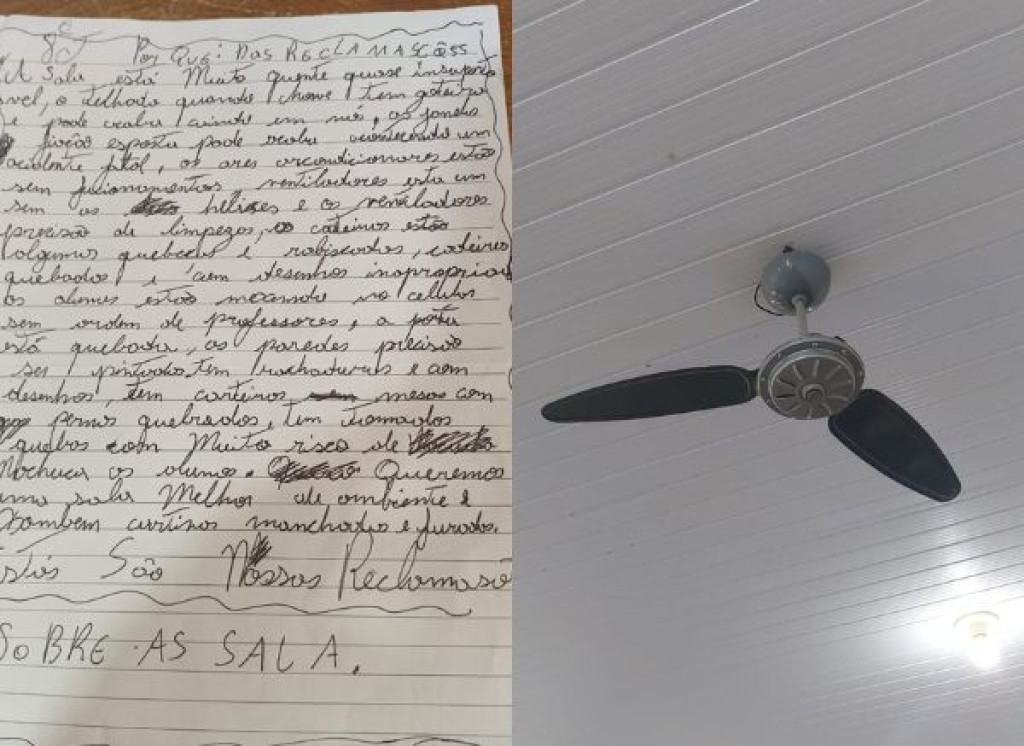 8º C Por Que: Das RECLAMASÇÕES
A Sala está Muito quente quase insuporta
vel, o telhado quando chove tem goteira
e pode acaba caindo em nós, as janelas
fiação esposta pode acaba acontecendo um
acidente fatal, os ares arcondicionares estão
sem funcionamentos, ventiladores esta um
sem as helises e os ventiladores
precisão de limpezas, as cadeiras estão
algumas quebradas e rabiscadas, cadeiras
quebradas e com desenhos inapropria
os alunos estão mexendo no celular
sem ordem de professores, a porta
está quebada, as paredes precisão
ser pintadas, tem rachaduras e com
desenhos, tem carteiras mesas com
pernas quebradas, tem tomadas
quebas com Muito risco de
Machuca os alunos. Queremos
uma sala Melhor de ambiente e
Tambem cortinas manchadas e furadas.
São Nossas Reclamasõ
SOBRE AS SALA.